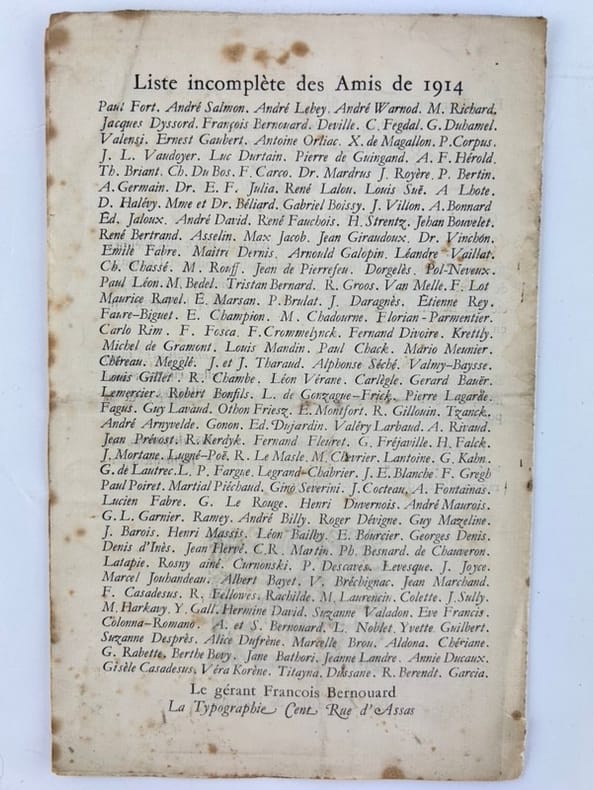 Liste incomplète des Amis de 1914
Paul Fort. André Salmon. André Lebey. André Warnod. M. Richard.
Jacques Dyssord. François Bernouard. Deville. C. Fegdal. G. Duhamel.
Valensi. Ernest Gaubert. Antoine Orliac. X. de Magallon. P. Corpus.
J. L. Vaudoyer. Luc Durtain. Pierre de Guingand. A. F. Hérold.
Th. Briant. Ch. Du Bos. F. Carco. Dr. Mardrus J. Royère. P. Bertin.
A. Germain. Dr. E. F. Julia. René Lalou. Louis Suë. A Lhote.
D. Halévy. Mme et Dr. Béliard. Gabriel Boissy. J. Villon. A. Bonnard
Ed. Jaloux. André David. René Fauchois. H. Strentz. Jehan Bouvelet.
René Bertrand. Asselin. Max Jacob. Jean Giraudoux. Dr. Vinchon.
Emile Fabre. Maitri Dernis. Arnould Galopin. Léandre Vaillat.
Ch. Chassé. M. Rouff. Jean de Pierrefeu. Dorgelès. Pol-Neveux.
Paul Léon. M. Bedel. Tristan Bernard. R. Groos. Van Melle. F. Lot
Maurice Ravel. E. Marsan. P. Brulat. J. Daragnès. Etienne Rey.
Faure-Biguet. E. Champion. M. Chadourne. Florian-Parmentier.
Carlo Rim. F. Fosca. F. Crommelynck. Fernand Divoire. Krettly.
Michel de Gramont. Louis Mandin. Paul Chack. Mario Meunier.
Chéreau. Megglé. J. et J. Tharaud. Alphonse Séché. Valmy-Baysse.
Louis Gillet. R. Chambe. Léon Vérane. Carlègle. Gerard Bauër.
Lemercier. Robert Bonfils. L. de Gonzague-Frick. Pierre Lagarde.
Fagus. Guy Lavaud. Othon Friesz. E. Montfort. R. Gillouin. Tzanck.
André Arnyvelde. Gonon. Ed. Dujardin. Valéry Larbaud. A. Rivaud.
Jean Prévost. R. Kerdyk. Fernand Fleuret. G. Fréjaville. H. Falck.
J. Mortane. Lugné-Poë. R. Le Masle. M. Chevrier. Lantoine. G. Kahn.
G. de Lautrec. L. P. Fargue. Legrand-Chabrier. J. E. Blanche. F. Gregh
Paul Poiret. Martial Piéchaud. Gino Severini. J. Cocteau. A. Fontainas.
Lucien Fabre. G. Le Rouge. Henri Duvernois. André Maurois.
G. L. Garnier. Ramey. André Billy. Roger Dévigne. Guy Mazeline.
J. Barois. Henri Massis. Léon Bailby. E. Bourcier. Georges Denis.
Denis d'Inès. Jean Hervé. C.R. Martin. Ph. Besnard. de Chauveron.
Latapie. Rosny aîné. Curnonski. P. Descaves. Levesque. J. Joyce.
Marcel Jouhandeau. Albert Bayet. V. Bréchignac. Jean Marchand.
F. Casadesus. R. Fellowes. Rachilde. M. Laurencin. Colette. J. Sully.
M. Harkavy. Y. Gall. Hermine David. Suzanne Valadon. Eve Francis.
Colonna-Romano. A. et S. Bernouard. L. Noblet. Yvette Guilbert.
Suzanne Desprès. Alice Dufrène. Marcelle Brou. Aldona. Chériane.
G. Rabette. Berthe Bovy. Jane Bathori. Jeanne Landre. Annie Ducaux.
Gisèle Casadesus. Véra Korène. Titayna. Dussane. R. Berendt. Garcia.
Le gérant Francois Bernouard
La Typographie Cent Rue d'Assas